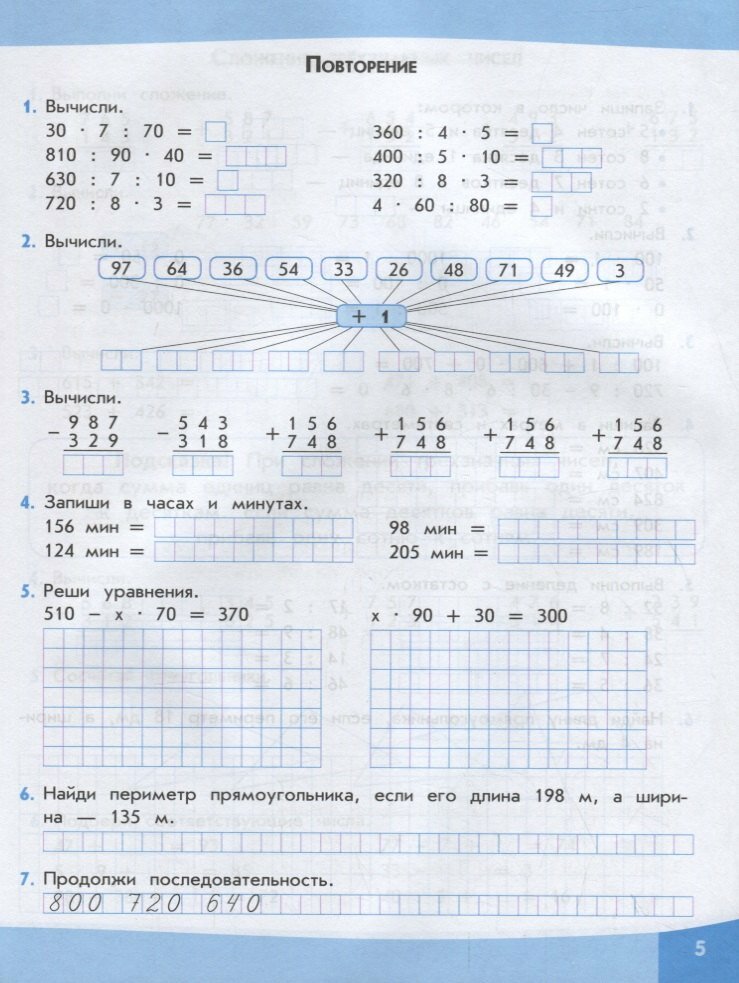 ПОВТОРЕНИЕ
1. Вычисли.
30 · 7 : 70 =
360 : 4 · 5 =
810 : 90 · 40 =
400 : 5 · 10 =
630 : 7 : 10 =
320 : 8 · 3 =
720 : 8 · 3 =
4 · 60 : 80 =
2. Вычисли.
97 64 36 54 33 26 48 71 49 3
+ 1
3. Вычисли.
− 987 − 543 + 156 + 156 + 156 + 156
329 318 748 748 748 748
4. Запиши в часах и минутах.
156 мин =
98 мин =
124 мин =
205 мин =
5. Реши уравнения.
510 − x · 70 = 370
x · 90 + 30 = 300
6. Найди периметр прямоугольника, если его длина 198 м, а шири-
на — 135 м.
7. Продолжи последовательность.
800 720 640
5